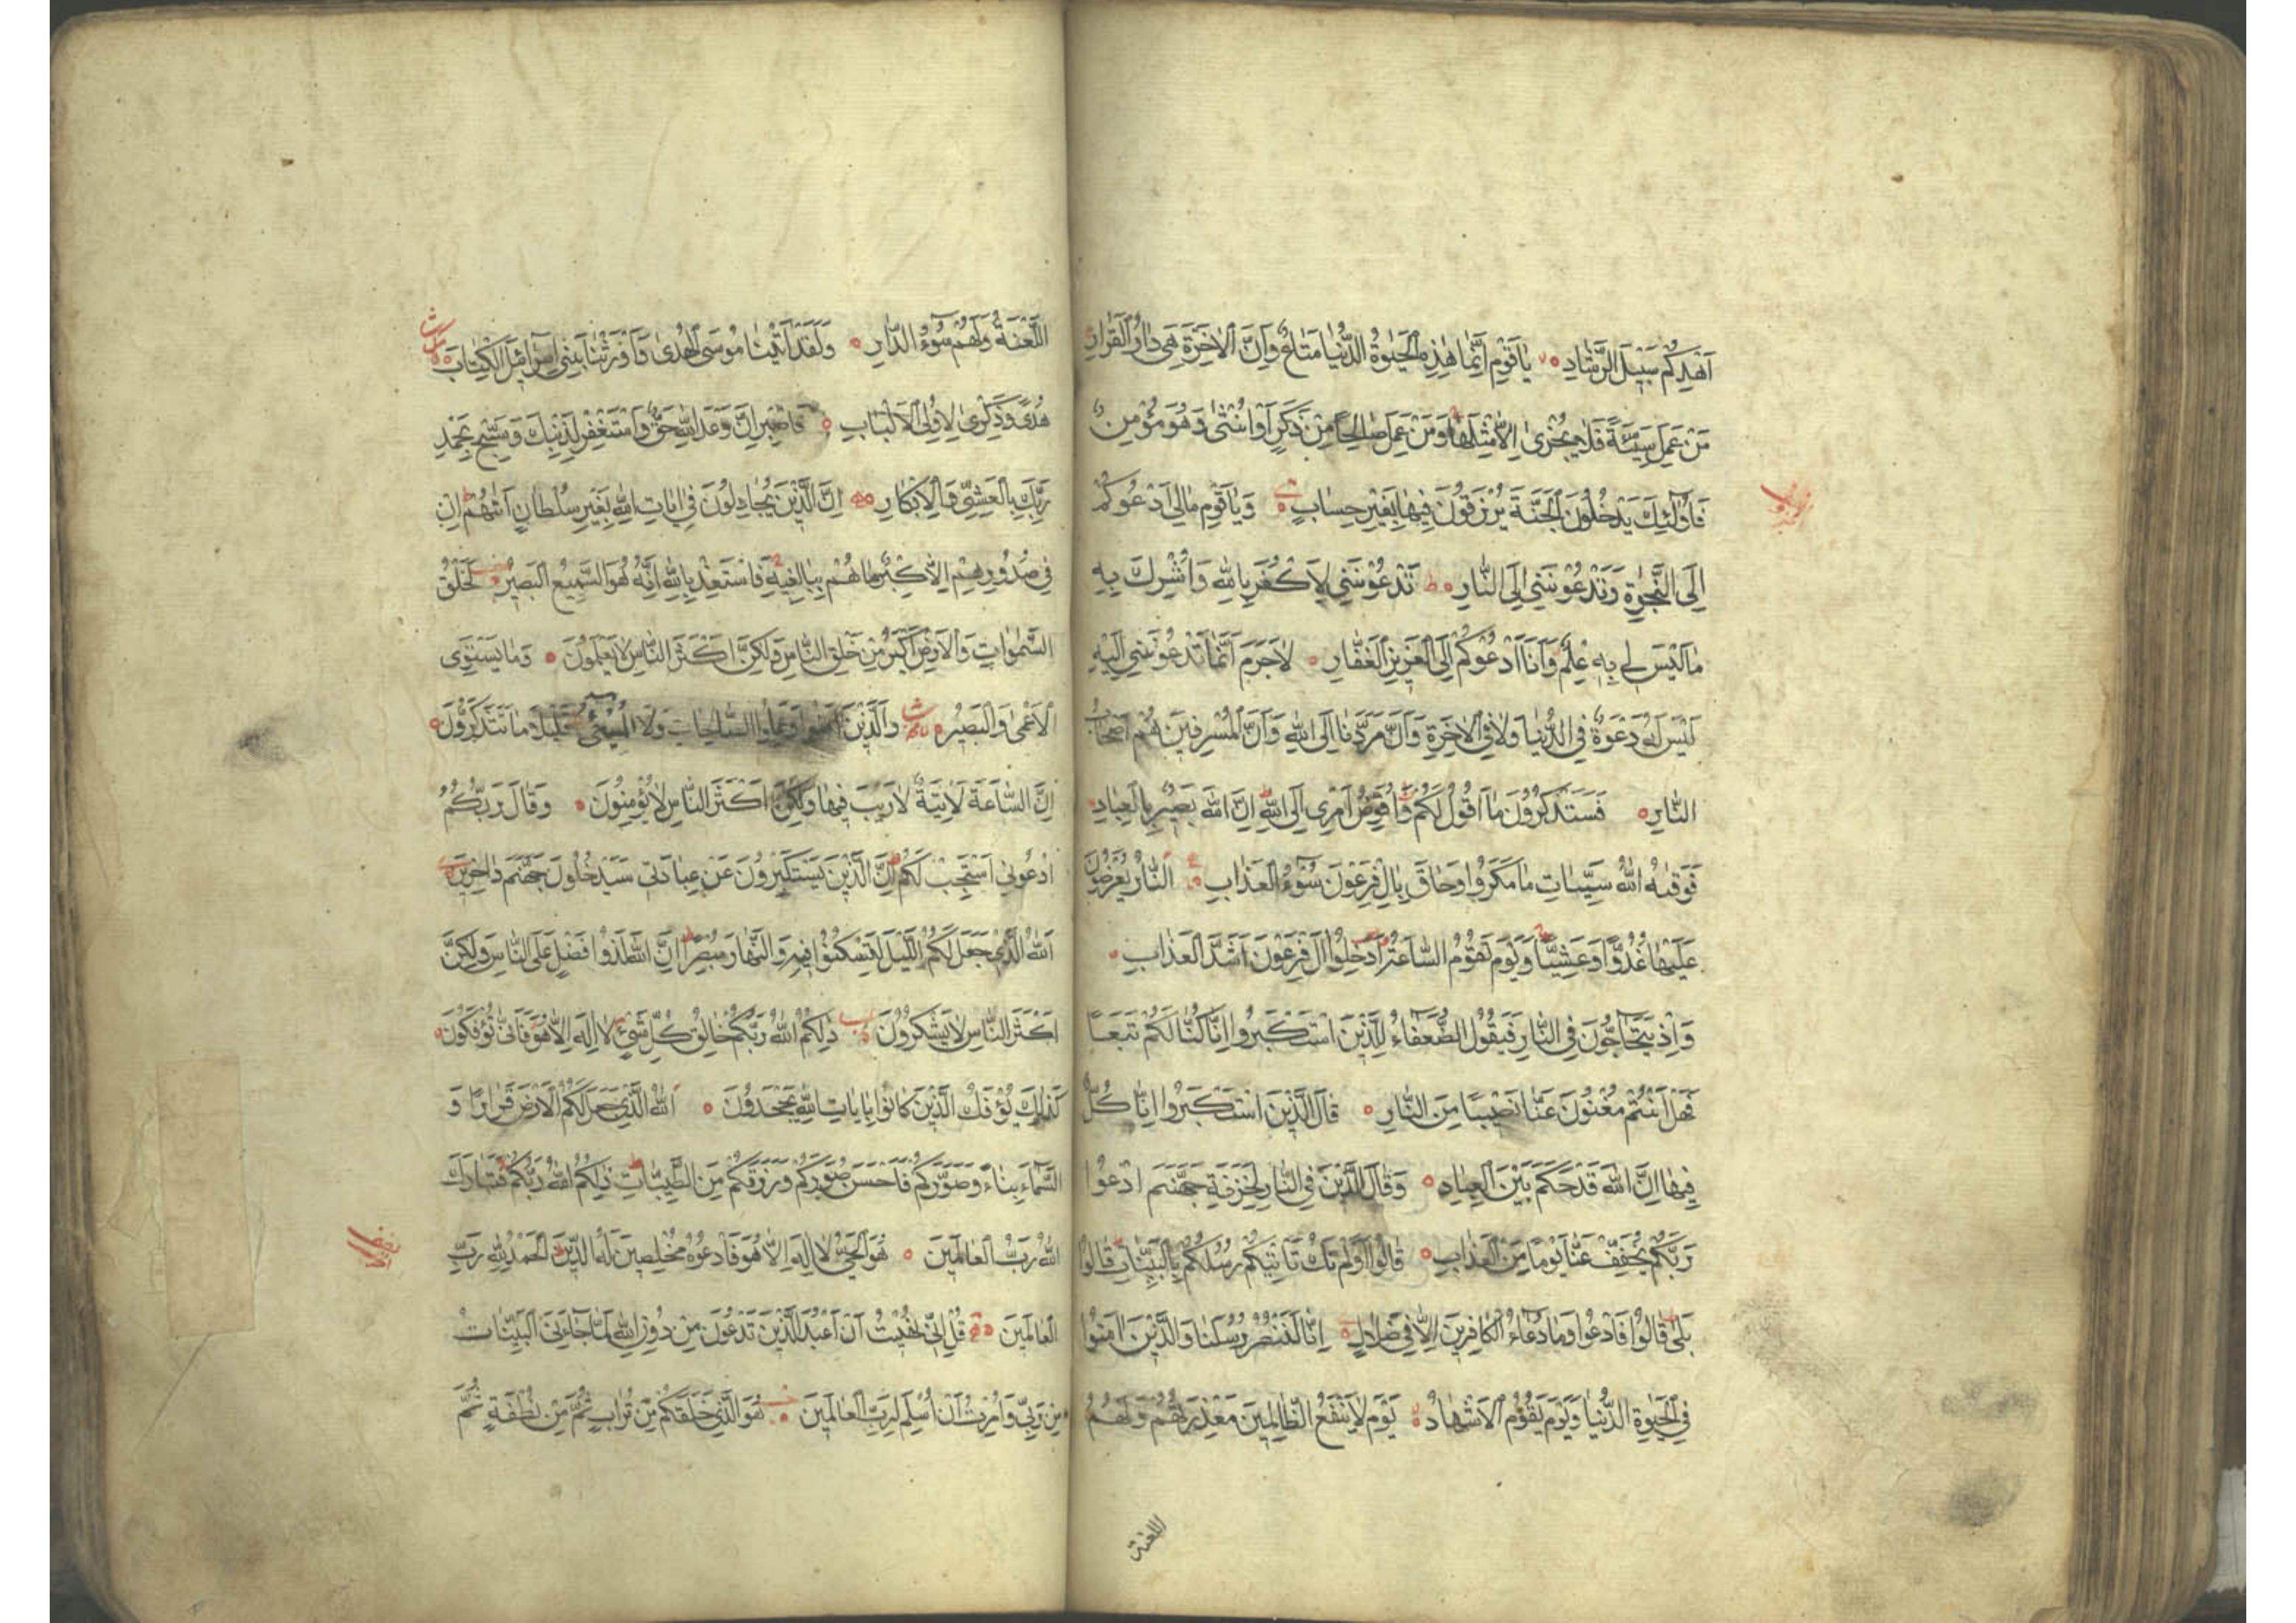 اَهْدِكُمْ سَبِيلَ الرَّشَادِ يَاقَوْمِ اِنَّمَا هٰذِهِ الْحَيٰوةُ الدُّنْيَا مَتَاعٌ وَاِنَّ الْاٰخِرَةَ هِىَ دَارُ الْقَرَارِ
مَنْ عَمِلَ سَيِّئَةً فَلَا يُجْزٰى اِلَّا مِثْلَهَا وَمَنْ عَمِلَ صَالِحًا مِنْ ذَكَرٍ اَوْ اُنْثٰى وَهُوَ مُؤْمِنٌ
فَاُولٰٓئِكَ يَدْخُلُونَ الْجَنَّةَ يُرْزَقُونَ فِيهَا بِغَيْرِ حِسَابٍ وَيَاقَوْمِ مَالِى اَدْعُوكُمْ
اِلَى النَّجٰوةِ وَتَدْعُونَنِى اِلَى النَّارِ تَدْعُونَنِى لِاَكْفُرَ بِاللّٰهِ وَاُشْرِكَ بِهِ
مَا لَيْسَ لِى بِهِ عِلْمٌ وَاَنَا اَدْعُوكُمْ اِلَى الْعَزِيزِ الْغَفَّارِ لَاجَرَمَ اَنَّمَا تَدْعُونَنِى اِلَيْهِ
لَيْسَ لَهُ دَعْوَةٌ فِى الدُّنْيَا وَلَا فِى الْاٰخِرَةِ وَاَنَّ مَرَدَّنَا اِلَى اللّٰهِ وَاَنَّ الْمُسْرِفِينَ هُمْ اَصْحَابُ
النَّارِ فَسَتَذْكُرُونَ مَا اَقُولُ لَكُمْ وَاُفَوِّضُ اَمْرِى اِلَى اللّٰهِ اِنَّ اللّٰهَ بَصِيرٌ بِالْعِبَادِ
فَوَقٰيهُ اللّٰهُ سَيِّئَاتِ مَا مَكَرُوا وَحَاقَ بِاٰلِ فِرْعَوْنَ سُوٓءُ الْعَذَابِ اَلنَّارُ يُعْرَضُونَ
عَلَيْهَا غُدُوًّا وَعَشِيًّا وَيَوْمَ تَقُومُ السَّاعَةُ اَدْخِلُوا اٰلَ فِرْعَوْنَ اَشَدَّ الْعَذَابِ
وَاِذْ يَتَحَاجُّونَ فِى النَّارِ فَيَقُولُ الضُّعَفَاءُ لِلَّذِينَ اسْتَكْبَرُوا اِنَّا كُنَّا لَكُمْ تَبَعًا
فَهَلْ اَنْتُمْ مُغْنُونَ عَنَّا نَصِيبًا مِنَ النَّارِ قَالَ الَّذِينَ اسْتَكْبَرُوا اِنَّا كُلٌّ
فِيهَا اِنَّ اللّٰهَ قَدْ حَكَمَ بَيْنَ الْعِبَادِ وَقَالَ الَّذِينَ فِى النَّارِ لِخَزَنَةِ جَهَنَّمَ ادْعُوا
رَبَّكُمْ يُخَفِّفْ عَنَّا يَوْمًا مِنَ الْعَذَابِ قَالُوا اَوَلَمْ تَكُ تَاْتِيكُمْ رُسُلُكُمْ بِالْبَيِّنَاتِ قَالُوا
بَلٰى قَالُوا فَادْعُوا وَمَا دُعَاءُ الْكَافِرِينَ اِلَّا فِى ضَلَالٍ اِنَّا لَنَنْصُرُ رُسُلَنَا وَالَّذِينَ اٰمَنُوا
فِى الْحَيٰوةِ الدُّنْيَا وَيَوْمَ يَقُومُ الْاَشْهَادُ يَوْمَ لَا يَنْفَعُ الظَّالِمِينَ مَعْذِرَتُهُمْ وَلَهُمُ
اللعنة
اللَّعْنَةُ وَلَهُمْ سُوٓءُ الدَّارِ وَلَقَدْ اٰتَيْنَا مُوسَى الْهُدٰى وَاَوْرَثْنَا بَنِى اِسْرَائِلَ الْكِتَابَ
هُدًى وَذِكْرٰى لِاُولِى الْاَلْبَابِ فَاصْبِرْ اِنَّ وَعْدَ اللّٰهِ حَقٌّ وَاسْتَغْفِرْ لِذَنْبِكَ وَسَبِّحْ بِحَمْدِ
رَبِّكَ بِالْعَشِىِّ وَالْاِبْكَارِ اِنَّ الَّذِينَ يُجَادِلُونَ فِى اٰيَاتِ اللّٰهِ بِغَيْرِ سُلْطَانٍ اَتٰيهُمْ اِنْ
فِى صُدُورِهِمْ اِلَّا كِبْرٌ مَا هُمْ بِبَالِغِيهِ فَاسْتَعِذْ بِاللّٰهِ اِنَّهُ هُوَ السَّمِيعُ الْبَصِيرُ لَخَلْقُ
السَّمٰوَاتِ وَالْاَرْضِ اَكْبَرُ مِنْ خَلْقِ النَّاسِ وَلٰكِنَّ اَكْثَرَ النَّاسِ لَا يَعْلَمُونَ وَمَا يَسْتَوِى
الْاَعْمٰى وَالْبَصِيرُ وَالَّذِينَ اٰمَنُوا وَعَمِلُوا الصَّالِحَاتِ وَلَا الْمُسِىءُ قَلِيلًا مَا تَتَذَكَّرُونَ
اِنَّ السَّاعَةَ لَاٰتِيَةٌ لَا رَيْبَ فِيهَا وَلٰكِنَّ اَكْثَرَ النَّاسِ لَا يُؤْمِنُونَ وَقَالَ رَبُّكُمُ
ادْعُونِى اَسْتَجِبْ لَكُمْ اِنَّ الَّذِينَ يَسْتَكْبِرُونَ عَنْ عِبَادَتِى سَيَدْخُلُونَ جَهَنَّمَ دَاخِرِينَ
اَللّٰهُ الَّذِى جَعَلَ لَكُمُ اللَّيْلَ لِتَسْكُنُوا فِيهِ وَالنَّهَارَ مُبْصِرًا اِنَّ اللّٰهَ لَذُوا فَضْلٍ عَلَى النَّاسِ وَلٰكِنَّ
اَكْثَرَ النَّاسِ لَا يَشْكُرُونَ ذٰلِكُمُ اللّٰهُ رَبُّكُمْ خَالِقُ كُلِّ شَىْءٍ لَا اِلٰهَ اِلَّا هُوَ فَاَنّٰى تُؤْفَكُونَ
كَذٰلِكَ يُؤْفَكُ الَّذِينَ كَانُوا بِاٰيَاتِ اللّٰهِ يَجْحَدُونَ اَللّٰهُ الَّذِى جَعَلَ لَكُمُ الْاَرْضَ قَرَارًا وَ
السَّمَاءَ بِنَاءً وَصَوَّرَكُمْ فَاَحْسَنَ صُوَرَكُمْ وَرَزَقَكُمْ مِنَ الطَّيِّبَاتِ ذٰلِكُمُ اللّٰهُ رَبُّكُمْ فَتَبَارَكَ
اللّٰهُ رَبُّ الْعَالَمِينَ هُوَ الْحَىُّ لَا اِلٰهَ اِلَّا هُوَ فَادْعُوهُ مُخْلِصِينَ لَهُ الدِّينَ اَلْحَمْدُ لِلّٰهِ رَبِّ
الْعَالَمِينَ قُلْ اِنِّى نُهِيتُ اَنْ اَعْبُدَ الَّذِينَ تَدْعُونَ مِنْ دُونِ اللّٰهِ لَمَّا جَاءَنِىَ الْبَيِّنَاتُ
مِنْ رَبِّى وَاُمِرْتُ اَنْ اُسْلِمَ لِرَبِّ الْعَالَمِينَ هُوَ الَّذِى خَلَقَكُمْ مِنْ تُرَابٍ ثُمَّ مِنْ نُطْفَةٍ ثُمَّ